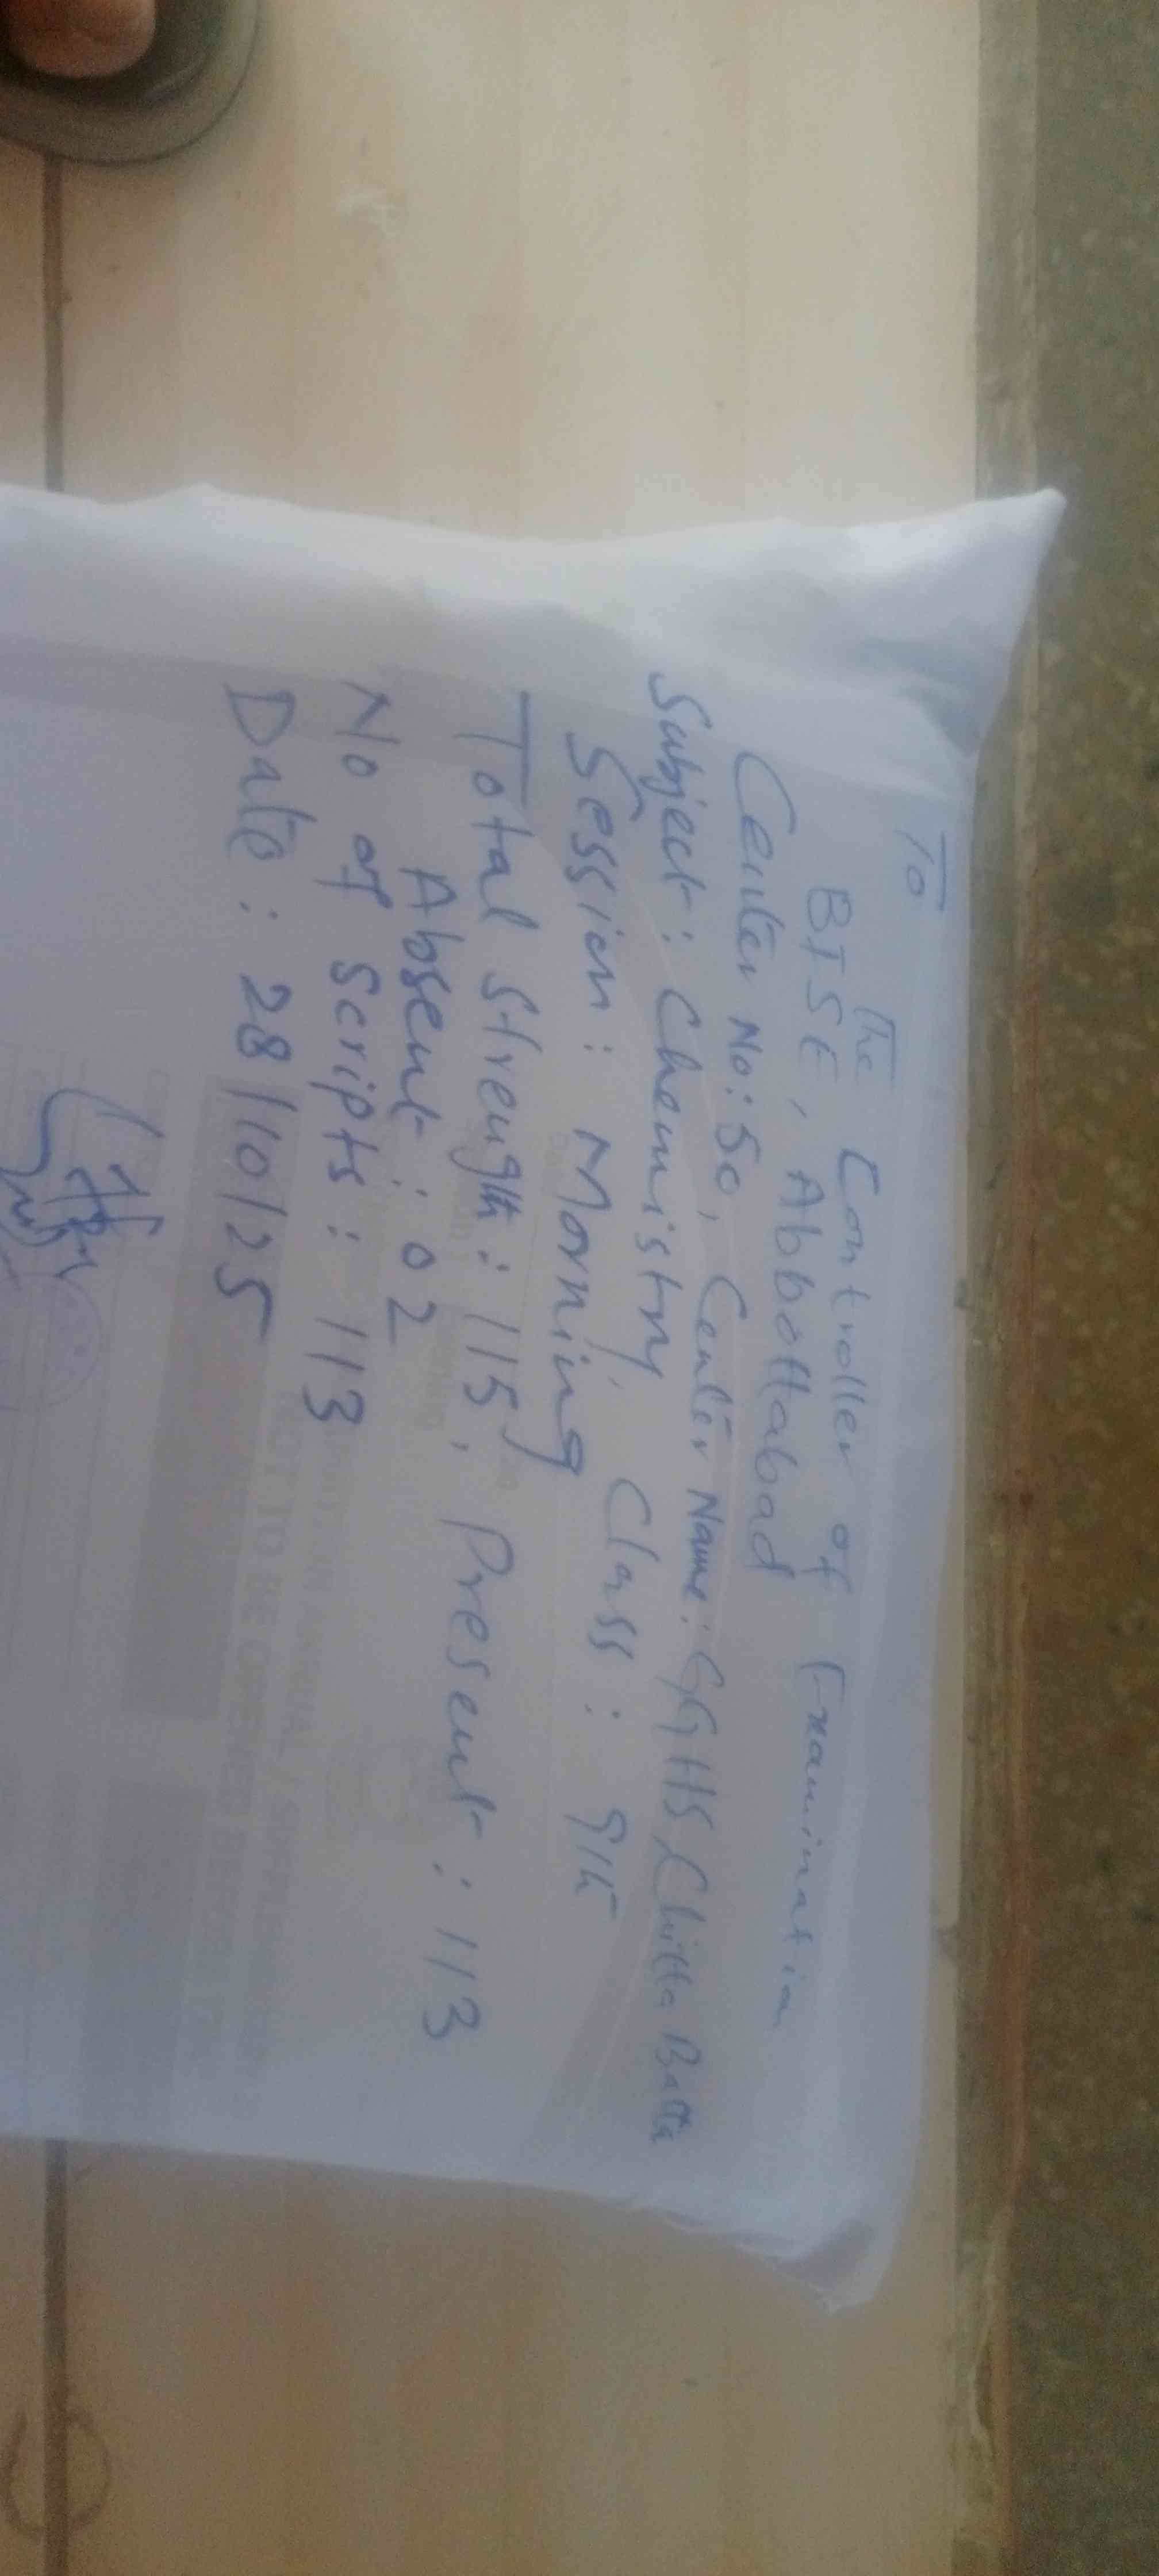 To
The Controller of Examination
BISE, Abbottabad
Center No: 50, Center Name: GGHS, Chitta Batta
Subject: Chemistry, Class: 9th
Session: Morning
Total Strength: 115, Present: 113
Absent: 02
No of Scripts: 113
Date: 28/10/25